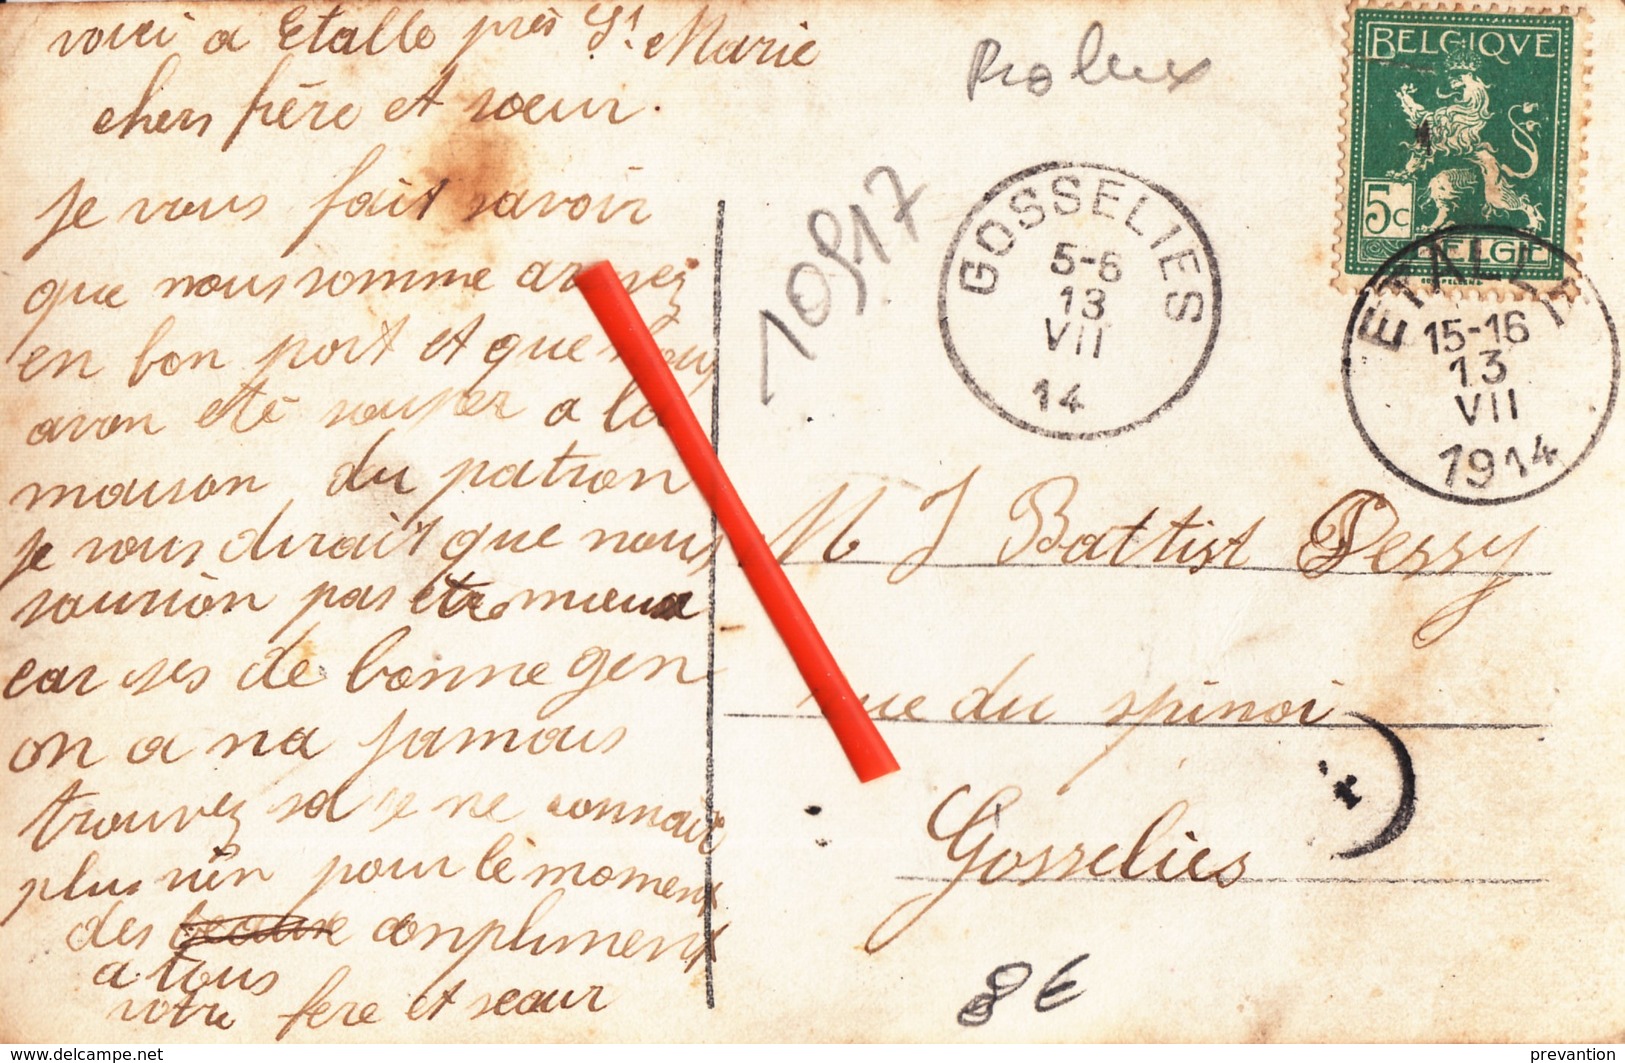 voici a Etalle près St Marie
chers frère et soeur.
je vous fait savoir
que nous somme arrivez
en bon port et que nous
avon etè souper a la
maison du patron
je vous dirait que nous
saurion pas etre mieux
car ses de bonne gen
on a na jamais
trouvez sa je ne connait
plus rien pour lè moment
des conpliment
a tous
votre fere et seour
Prolux
10917
BELGIQUE
5c
BELGIE
GOSSELIES
5-6
13
VII
14
ETALLE
15-16
13
VII
1914
M J Battist Dessy
rue du spinoi
Gosselies
8€
www.delcampe.net
prevantion